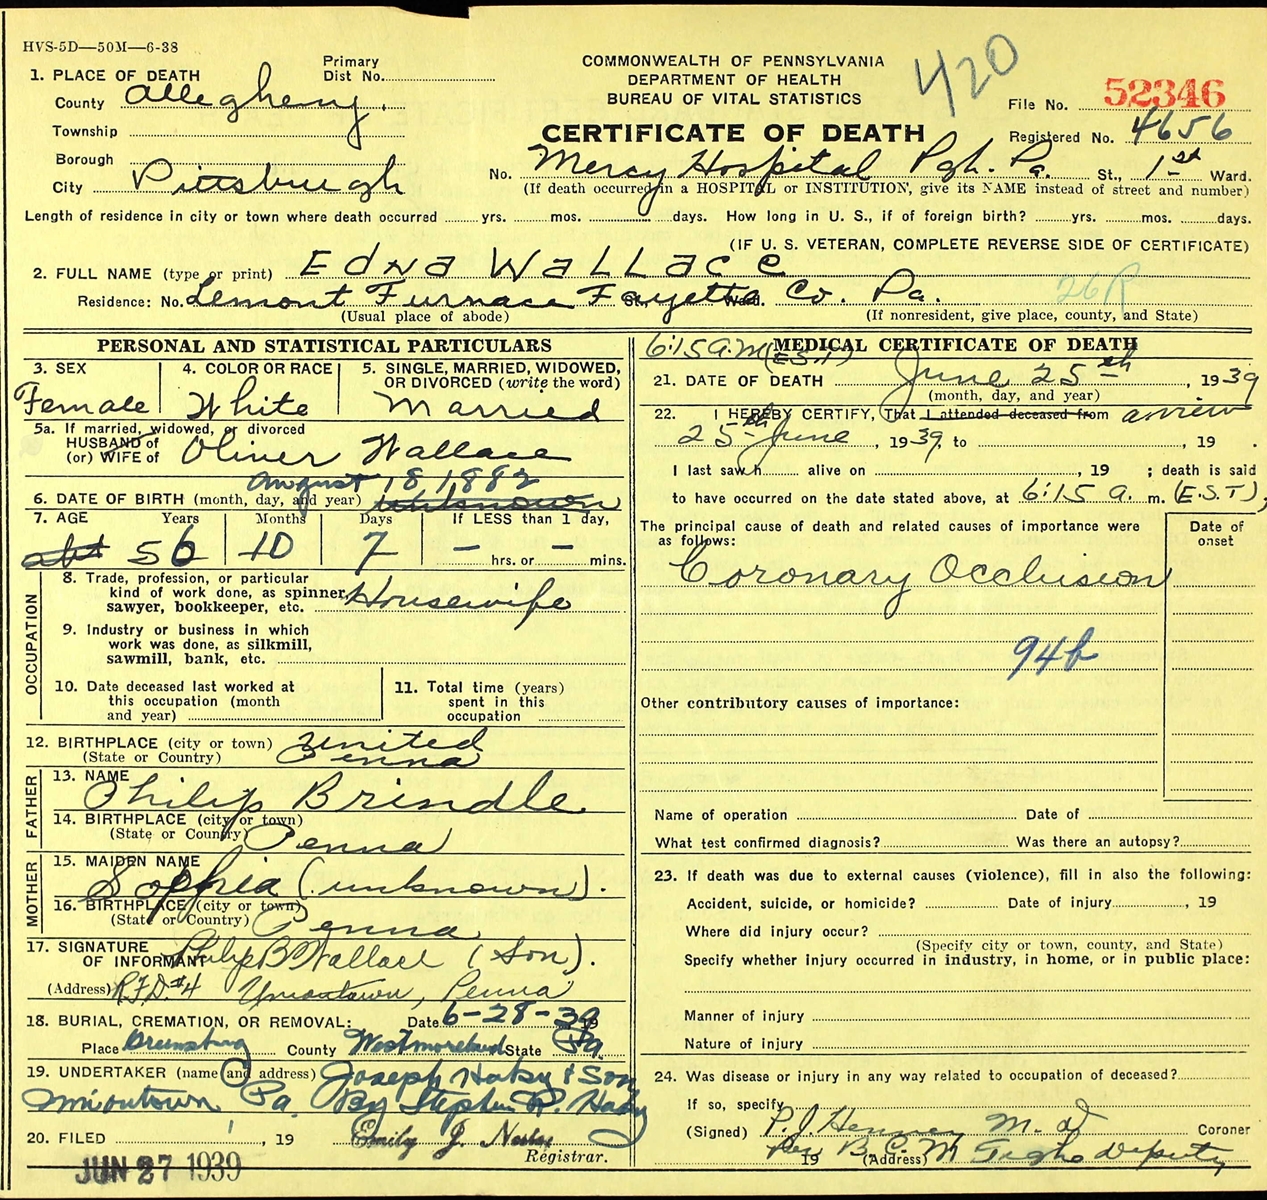 HVS-5D—50M—6-38
1. PLACE OF DEATH
County Allegheny.
Township
Borough
City Pittsburgh
Primary
Dist No.
COMMONWEALTH OF PENNSYLVANIA
DEPARTMENT OF HEALTH
BUREAU OF VITAL STATISTICS
CERTIFICATE OF DEATH
420
File No. 52346
Registered No. 4656
No. Mercy Hospital Pgh. Pa. St., 1st Ward.
(If death occurred in a HOSPITAL or INSTITUTION, give its NAME instead of street and number)
Length of residence in city or town where death occurred yrs. mos. days. How long in U. S., if of foreign birth? yrs. mos. days.
(IF U. S. VETERAN, COMPLETE REVERSE SIDE OF CERTIFICATE)
2. FULL NAME (type or print) Edna Wallace
Residence: No. Lemont Furnace Fayette Co. Pa. St. Ward. 26R
(Usual place of abode) (If nonresident, give place, county, and State)
PERSONAL AND STATISTICAL PARTICULARS
3. SEX
Female
4. COLOR OR RACE
White
5. SINGLE, MARRIED, WIDOWED,
OR DIVORCED (write the word)
Married
5a. If married, widowed, or divorced
HUSBAND of
(or) WIFE of Oliver Wallace
August 18 1882
6. DATE OF BIRTH (month, day, and year) unknown
7. AGE Years Months Days If LESS than 1 day,
abt 56 10 7 – hrs. or – mins.
OCCUPATION
8. Trade, profession, or particular
kind of work done, as spinner,
sawyer, bookkeeper, etc. Housewife
9. Industry or business in which
work was done, as silkmill,
sawmill, bank, etc.
10. Date deceased last worked at
this occupation (month
and year)
11. Total time (years)
spent in this
occupation
12. BIRTHPLACE (city or town) United
(State or Country) Penna
FATHER
13. NAME
Philip Brindle
14. BIRTHPLACE (city or town)
(State or Country) Penna
MOTHER
15. MAIDEN NAME
Sophia (unknown).
16. BIRTHPLACE (city or town)
(State or Country) Penna
17. SIGNATURE
OF INFORMANT Philip B Wallace (Son).
(Address) R.F.D. #4 Uniontown, Penna
18. BURIAL, CREMATION, OR REMOVAL: Date 6-28-39 19
Place Greensburg County Westmoreland State Pa.
19. UNDERTAKER (name and address) Joseph Haky & Son
Uniontown Pa. By Stephen R. Haky
20. FILED , 19 Emily J.
Registrar.
JUN 27 1939
MEDICAL CERTIFICATE OF DEATH
6:15 a.m (E.S.T)
21. DATE OF DEATH June 25th , 1939
(month, day, and year)
22. I HEREBY CERTIFY, That I attended deceased from a view
25th June , 1939, to , 19 .
I last saw h alive on , 19 ; death is said
to have occurred on the date stated above, at 6:15 a. m. (E.S.T)
The principal cause of death and related causes of importance were
as follows:
Date of
onset
Coronary Occlusion
94b
Other contributory causes of importance:
Name of operation Date of
What test confirmed diagnosis? Was there an autopsy?
23. If death was due to external causes (violence), fill in also the following:
Accident, suicide, or homicide? Date of injury , 19
Where did injury occur?
(Specify city or town, county, and State)
Specify whether injury occurred in industry, in home, or in public place:
Manner of injury
Nature of injury
24. Was disease or injury in any way related to occupation of deceased?
If so, specify
(Signed) P. J. Henney M. D Coroner
Per B. C. McTighe Deputy
19 (Address)